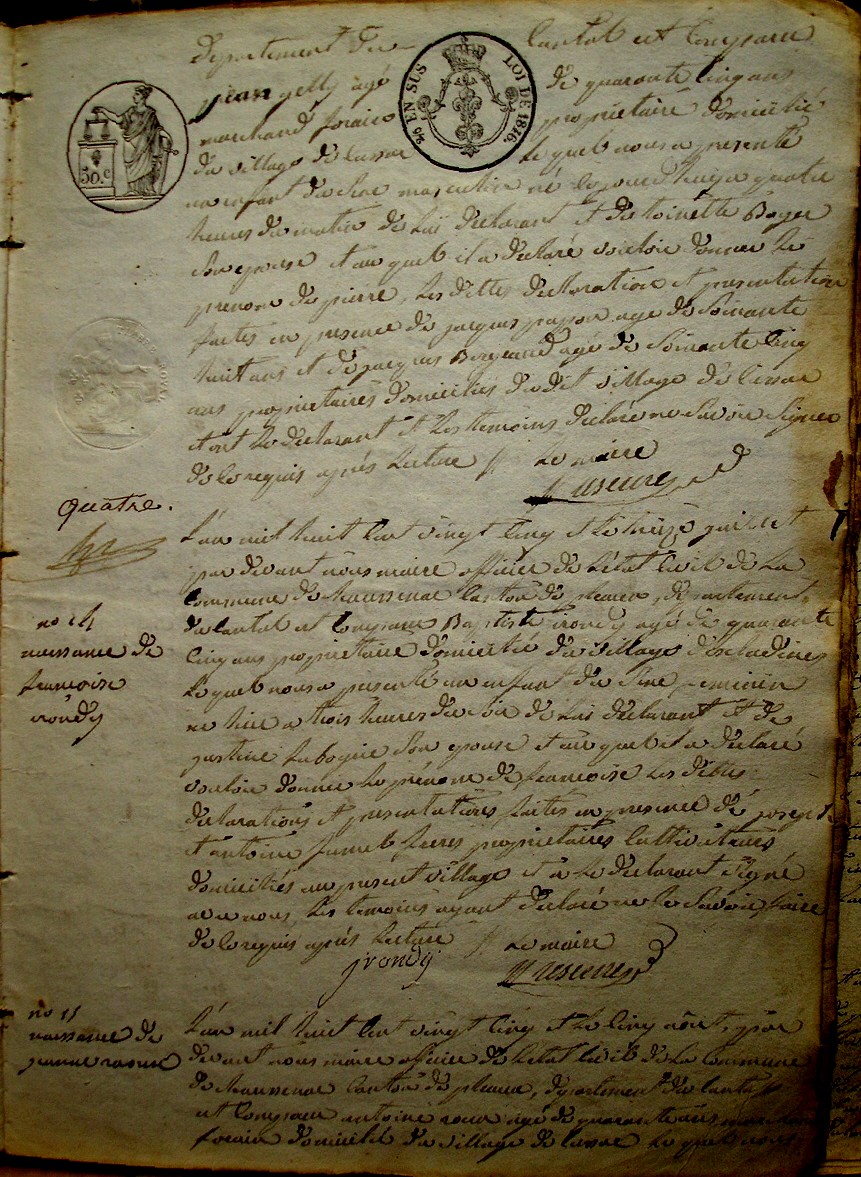 département du Cantal est comparu
jean gelly agé de quarante cinq ans
marchand forain propriétaire domicilié
du village de Cussac lequel nous a presenté
un enfant du sexe masculin né ce jourd'hui a quatre
heures du matin de lui declarant et de toinette Boyer
son epouse et au quel il a declaré vouloir donner le
prenom de pierre, les dittes declaration et presentation
faites en presence de jacques agé de soixante
huit ans et de jacques Bergeaud agé de soixante cinq
ans proprietaires domiciliés du dit village de Cussac
et ont le declarant et les temoins declaré ne savoir signer
de ce requis après lecture Le maire
30.c
EN SUS LOI DE 1816
quatre.
L'an mil huit cent vingt cinq et le treize juillet
par devant nous maire officier de l'état civil de la
commune de Chaussenac canton de pleaux, departement
du Cantal est comparu Baptiste irondy agé de quarante
cinq ans propriétaire domicilié du village d'escladines
lequel nous a presenté un enfant du sexe feminin
né hier a trois heures du soir de lui declarant et de
justine Labogrie son epouse et au quel il a declaré
vouloir donner le prénom de francoise les dittes
declarations et presentations faites en presence de joseph
et antoine jumel freres propriétaires cultivateurs
domiciliés au present village et a le declarant signé
avec nous, les temoins ayant declaré ne le savoir faire
de ce requis après lecture Le maire
jrondy
no 14
naissance de
francoise
irondy
no 15
naissance de
jeanne roux
L'an mil huit cent vingt cinq et le cinq août, par
devant nous maire officier de l'etat civil de la commune
de Chaussenac canton de pleaux, departement du Cantal
est comparu antoine roux agé de quarante ans marchand
forain domicilié du village de Cussac lequel nous a